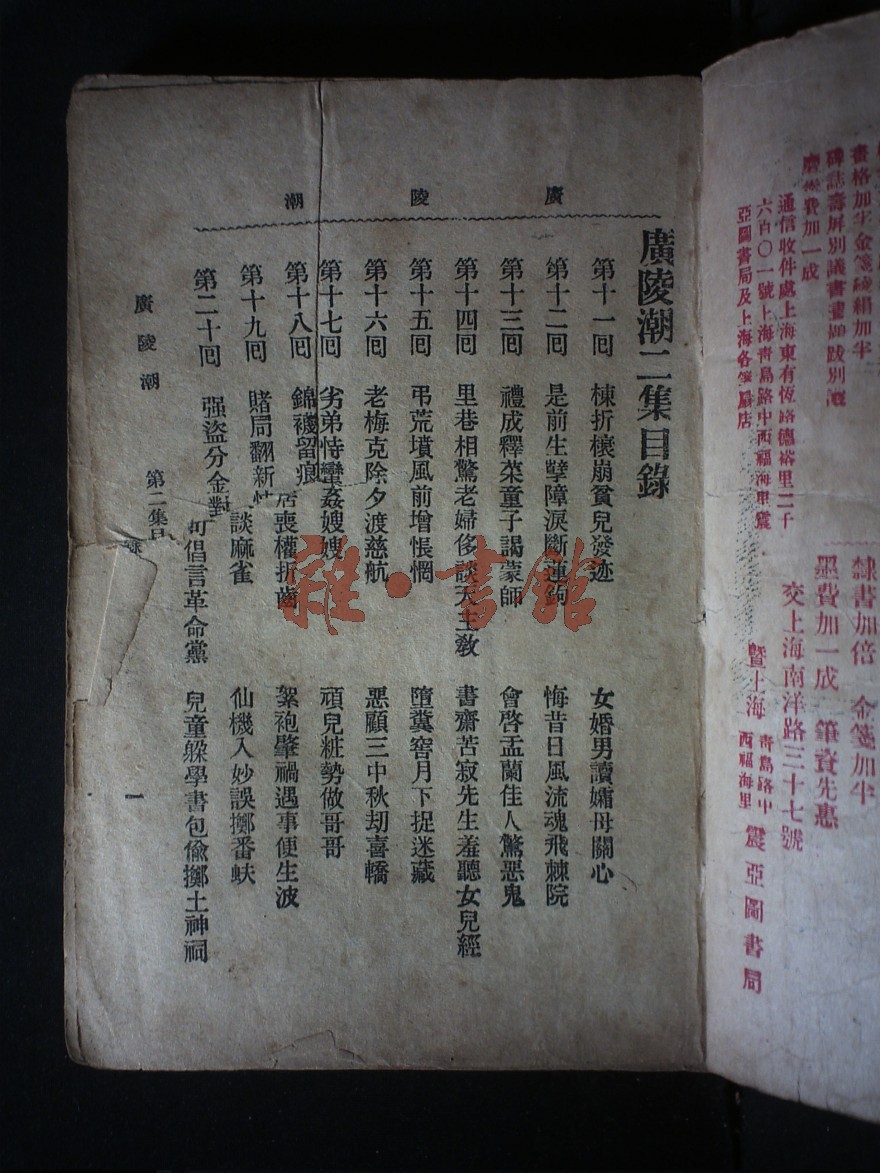 畫格加半 金箋綾絹加半
碑誌壽屏別議 書畫題跋別議
磨墨費加一成
通信收件處上海東有恆路德裕里二千
六百〇一號上海靑島路中西福海里震
亞圖書局及上海各箋扇店
隸書加倍 金箋加半
墨費加一成 筆資先惠
交上海南洋路三十七號
曁上海 靑島路中 西福海里 震亞圖書局
廣陵潮
廣陵潮二集目錄
第十一回 棟折榱崩貧兒發迹 女婚男讀孀母關心
第十二回 是前生孽障淚斷蓮鉤 悔昔日風流魂飛棘院
第十三回 禮成釋菜童子謁蒙師 會啓盂蘭佳人驚惡鬼
第十四回 里巷相驚老婦侈談天主敎 書齋苦寂先生羞聽女兒經
第十五回 弔荒墳風前增悵惘 墮糞窖月下捉迷藏
第十六回 老梅克除夕渡慈航 惡顧三中秋刼喜轎
第十七回 劣弟恃蠻姦嫂嫂 頑兒粧勢做哥哥
第十八回 錦襪留痕居喪權折齒 絮袍肇禍遇事便生波
第十九回 賭局翻新 談麻雀 仙機入妙誤擲番蚨
第二十回 强盜分金對 何倡言革命黨 兒童躱學書包偸擲土神祠
廣陵潮 第二集目錄 一
雜·書館